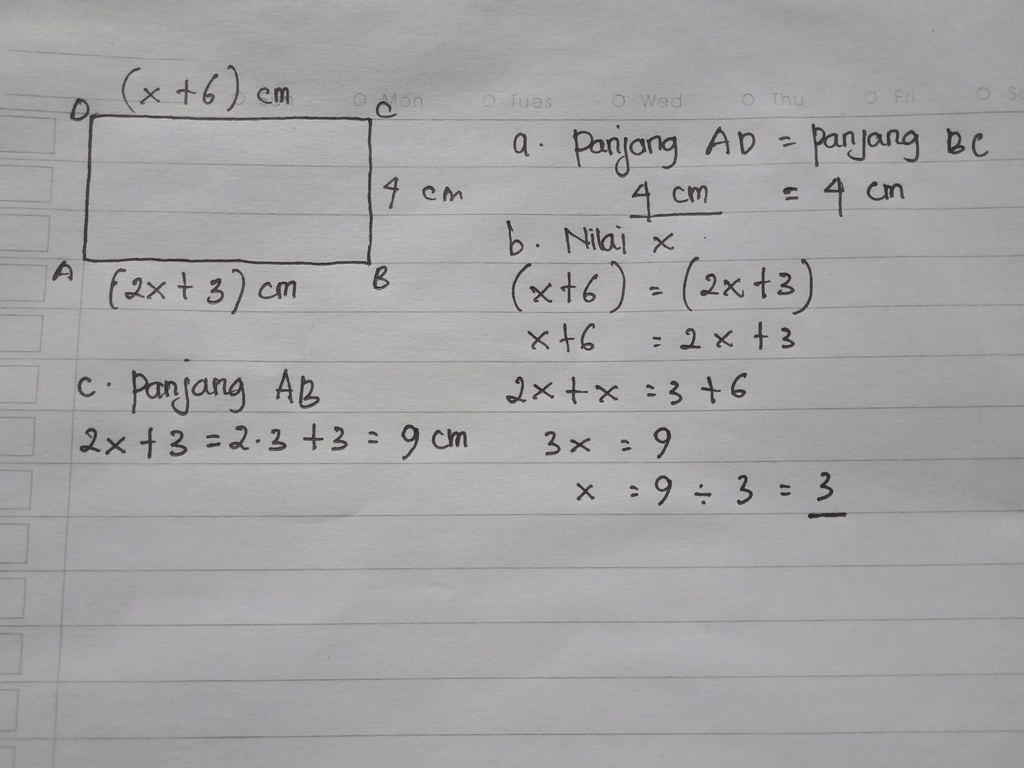 (x + 6) cm
D
C
4 cm
A
B
(2x + 3) cm
Mon Tues Wed Thu Fri
a. Panjang AD = panjang BC
4 cm = 4 cm
b. Nilai x
(x+6) = (2x+3)
x+6 = 2x + 3
2x + x = 3 + 6
3x = 9
x = 9 ÷ 3 = 3
c. Panjang AB
2x + 3 = 2.3 + 3 = 9 cm